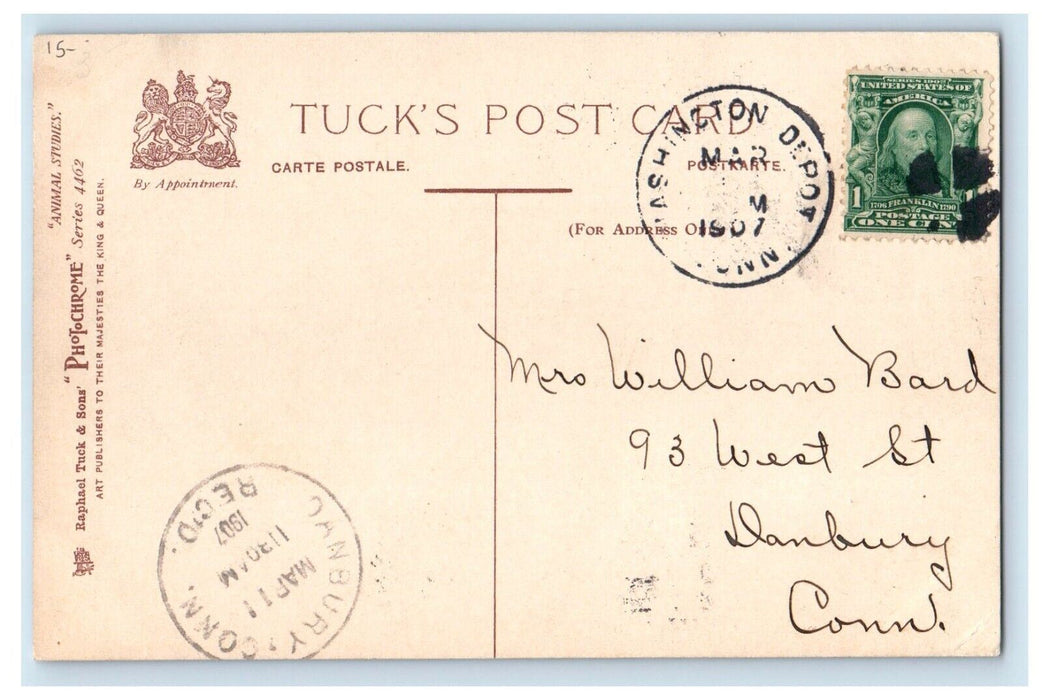 15-
"ANIMAL STUDIES."
Raphael Tuck & Sons' "PHOTOCHROME" Series 4462
ART PUBLISHERS TO THEIR MAJESTIES THE KING & QUEEN.
By Appointment.
TUCK'S POST CARD
CARTE POSTALE.
POSTKARTE.
(FOR ADDRESS
WASHINGTON DEPOT
MAR
M
1907
CONN.
SERIES 1902
UNITED STATES OF
AMERICA
1
1706 FRANKLIN 1790
POSTAGE
ONE CENT
Mrs William Bard
93 West St
Danbury
Conn.
DANBURY, CONN.
MAR 11
1130 AM
1907
REC'D.